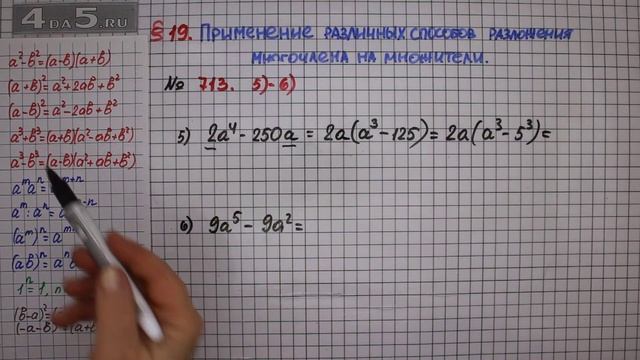 4DA5.RU
§19. Применение различных способов разложения
многочлена на множители.
№ 713. 5)-6)
a²-b²=(a-b)(a+b)
(a+b)²=a²+2ab+b²
(a-b)²=a²-2ab+b²
a³+b³=(a+b)(a²-ab+b²)
a³-b³=(a-b)(a²+ab+b²)
aᵐaⁿ=ᵐ⁺ⁿ
aᵐ:aⁿ=a⁻ⁿ
(aᵐ)ⁿ=aᵐ
(ab)ⁿ=aⁿ
1ⁿ=1, n
(b-a)²=
(-a-b)²=(a+b
5) 2a⁴-250a=2a(a³-125)=2a(a³-5³)=
6) 9a⁵-9a²=